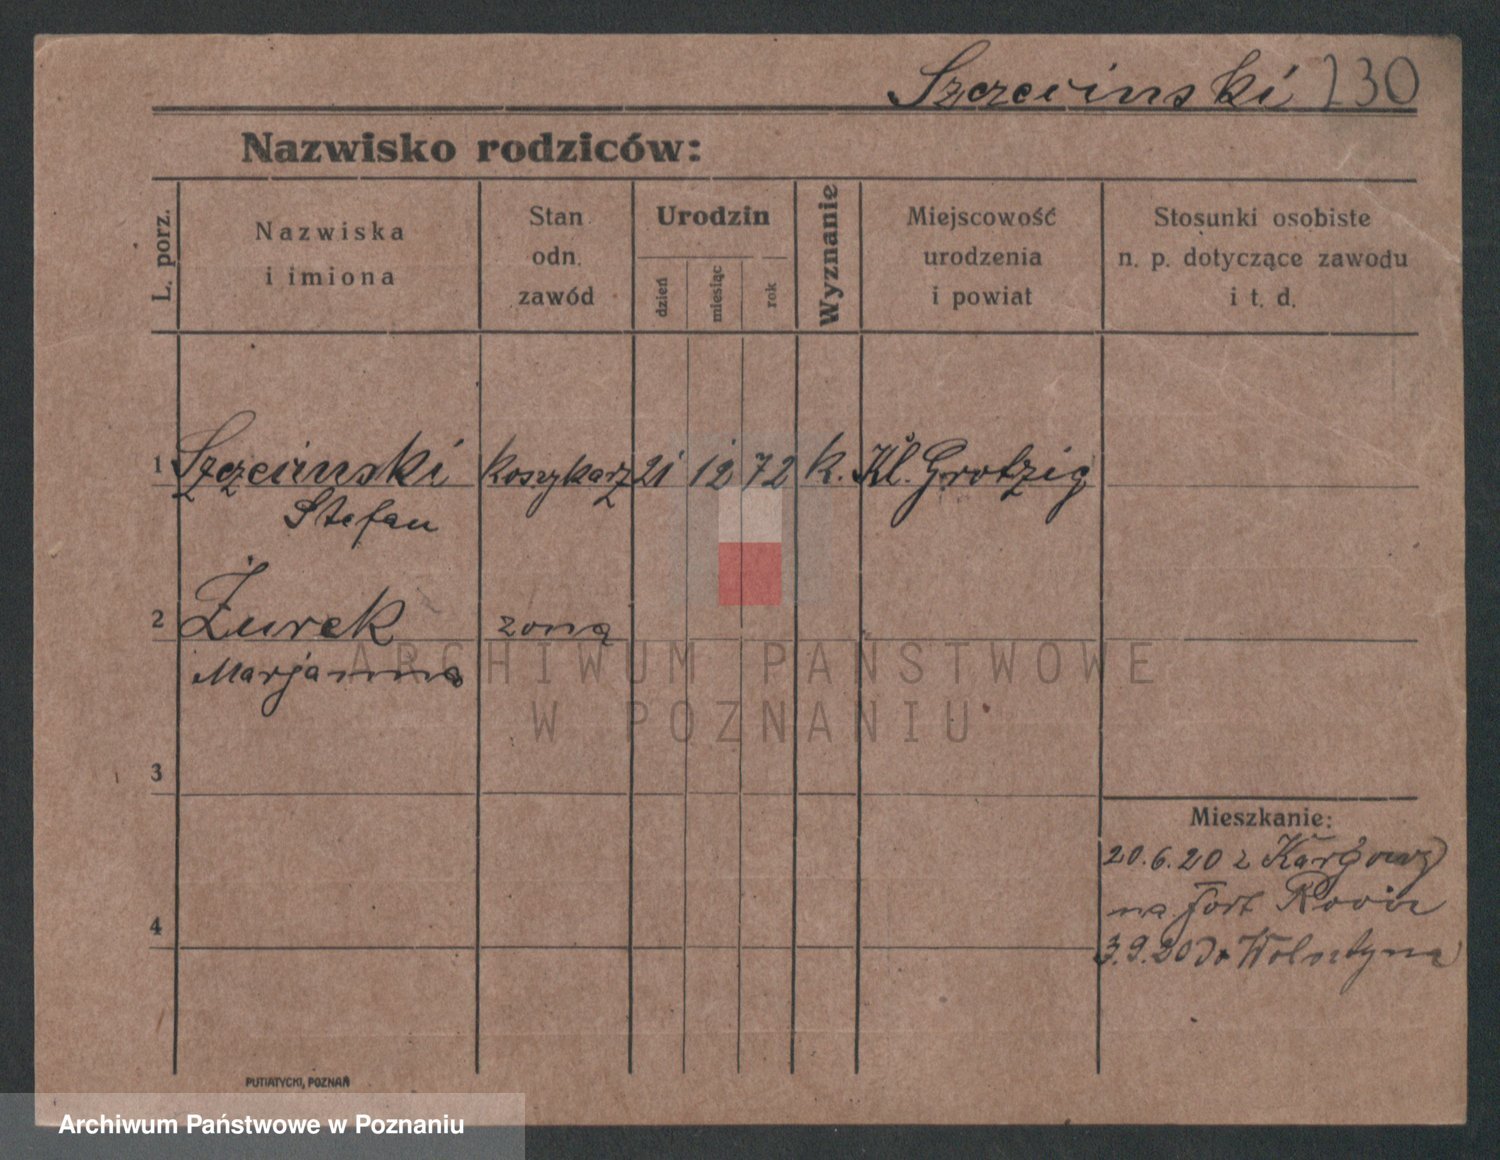 Szczeciński 230
Nazwisko rodziców:
L. porz.
Nazwiska
i imiona
Stan
odn.
zawód
Urodzin
dzień
miesiąc
rok
Wyznanie
Miejscowość
urodzenia
i powiat
Stosunki osobiste
n. p. dotyczące zawodu
i t. d.
1 Szczeciński koszykarz 21 12 72 k. Kl. Grotzig
Stefan
2 Żurek żona
Marjanna
3
4
Mieszkanie:
20.6.20 z Kargowy
na Fort
3.9.20 do Wolsztyna
PUTIATYCKI, POZNAŃ
ARCHIWUM PAŃSTWOWE
W POZNANIU
Archiwum Państwowe w Poznaniu